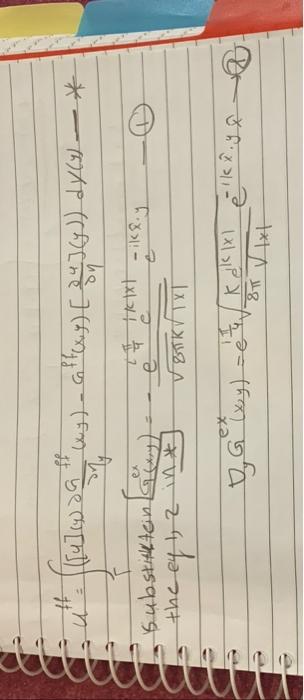 u^{ff} = ∫_Γ ([u](y) ∂G^{ff}/∂η_y (x,y) - G^{ff}(x,y) [∂u/∂η](y)) dγ(y) — *
Substitution G^{ex}(x,y) = - e^{iπ/4} e^{ik|x|} / √8πk √|x| e^{-ikx̂.y} — ①
the eq 1, 2 in *
∇_y G^{ex}(x,y) = e^{iπ/4} √(k/8π) e^{ik|x|} / √|x| e^{-ikx̂.y} x̂ — ②